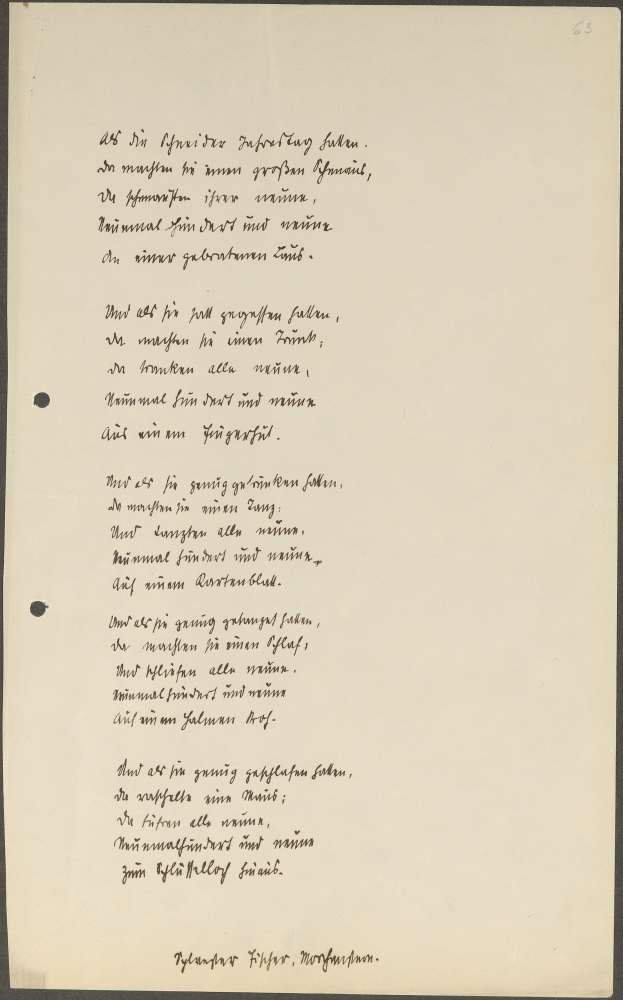 63
Als die Schneider Jahrestag hatten.
Da machten sie einen großen Schmaus,
Da schmausten ihrer neune,
Neunmal hundert und neune
An einer gebratenen Laus.
Und als sie satt gegessen hatten,
Da machten sie einen Trunk,
Da tranken alle neune,
Neunmal hundert und neune
Aus einem Fingerhut.
Und als sie genug getrunken hatten,
Da machten sie einen Tanz,
Und tanzten alle neune,
Neunmal hundert und neune
Auf einem Kartenblatt.
Und als sie genug getanzet hatten,
Da machten sie einen Schlaf,
Und schliefen alle neune.
Neunmal hundert und neune
Auf einem Halmen Stroh.
Und als sie genug geschlafen hatten,
Da raschelte eine Maus;
Da fuhren alle neune,
Neunmalhundert und neune
Zum Schlüsselloch hinaus.
Sylvester Fischer,